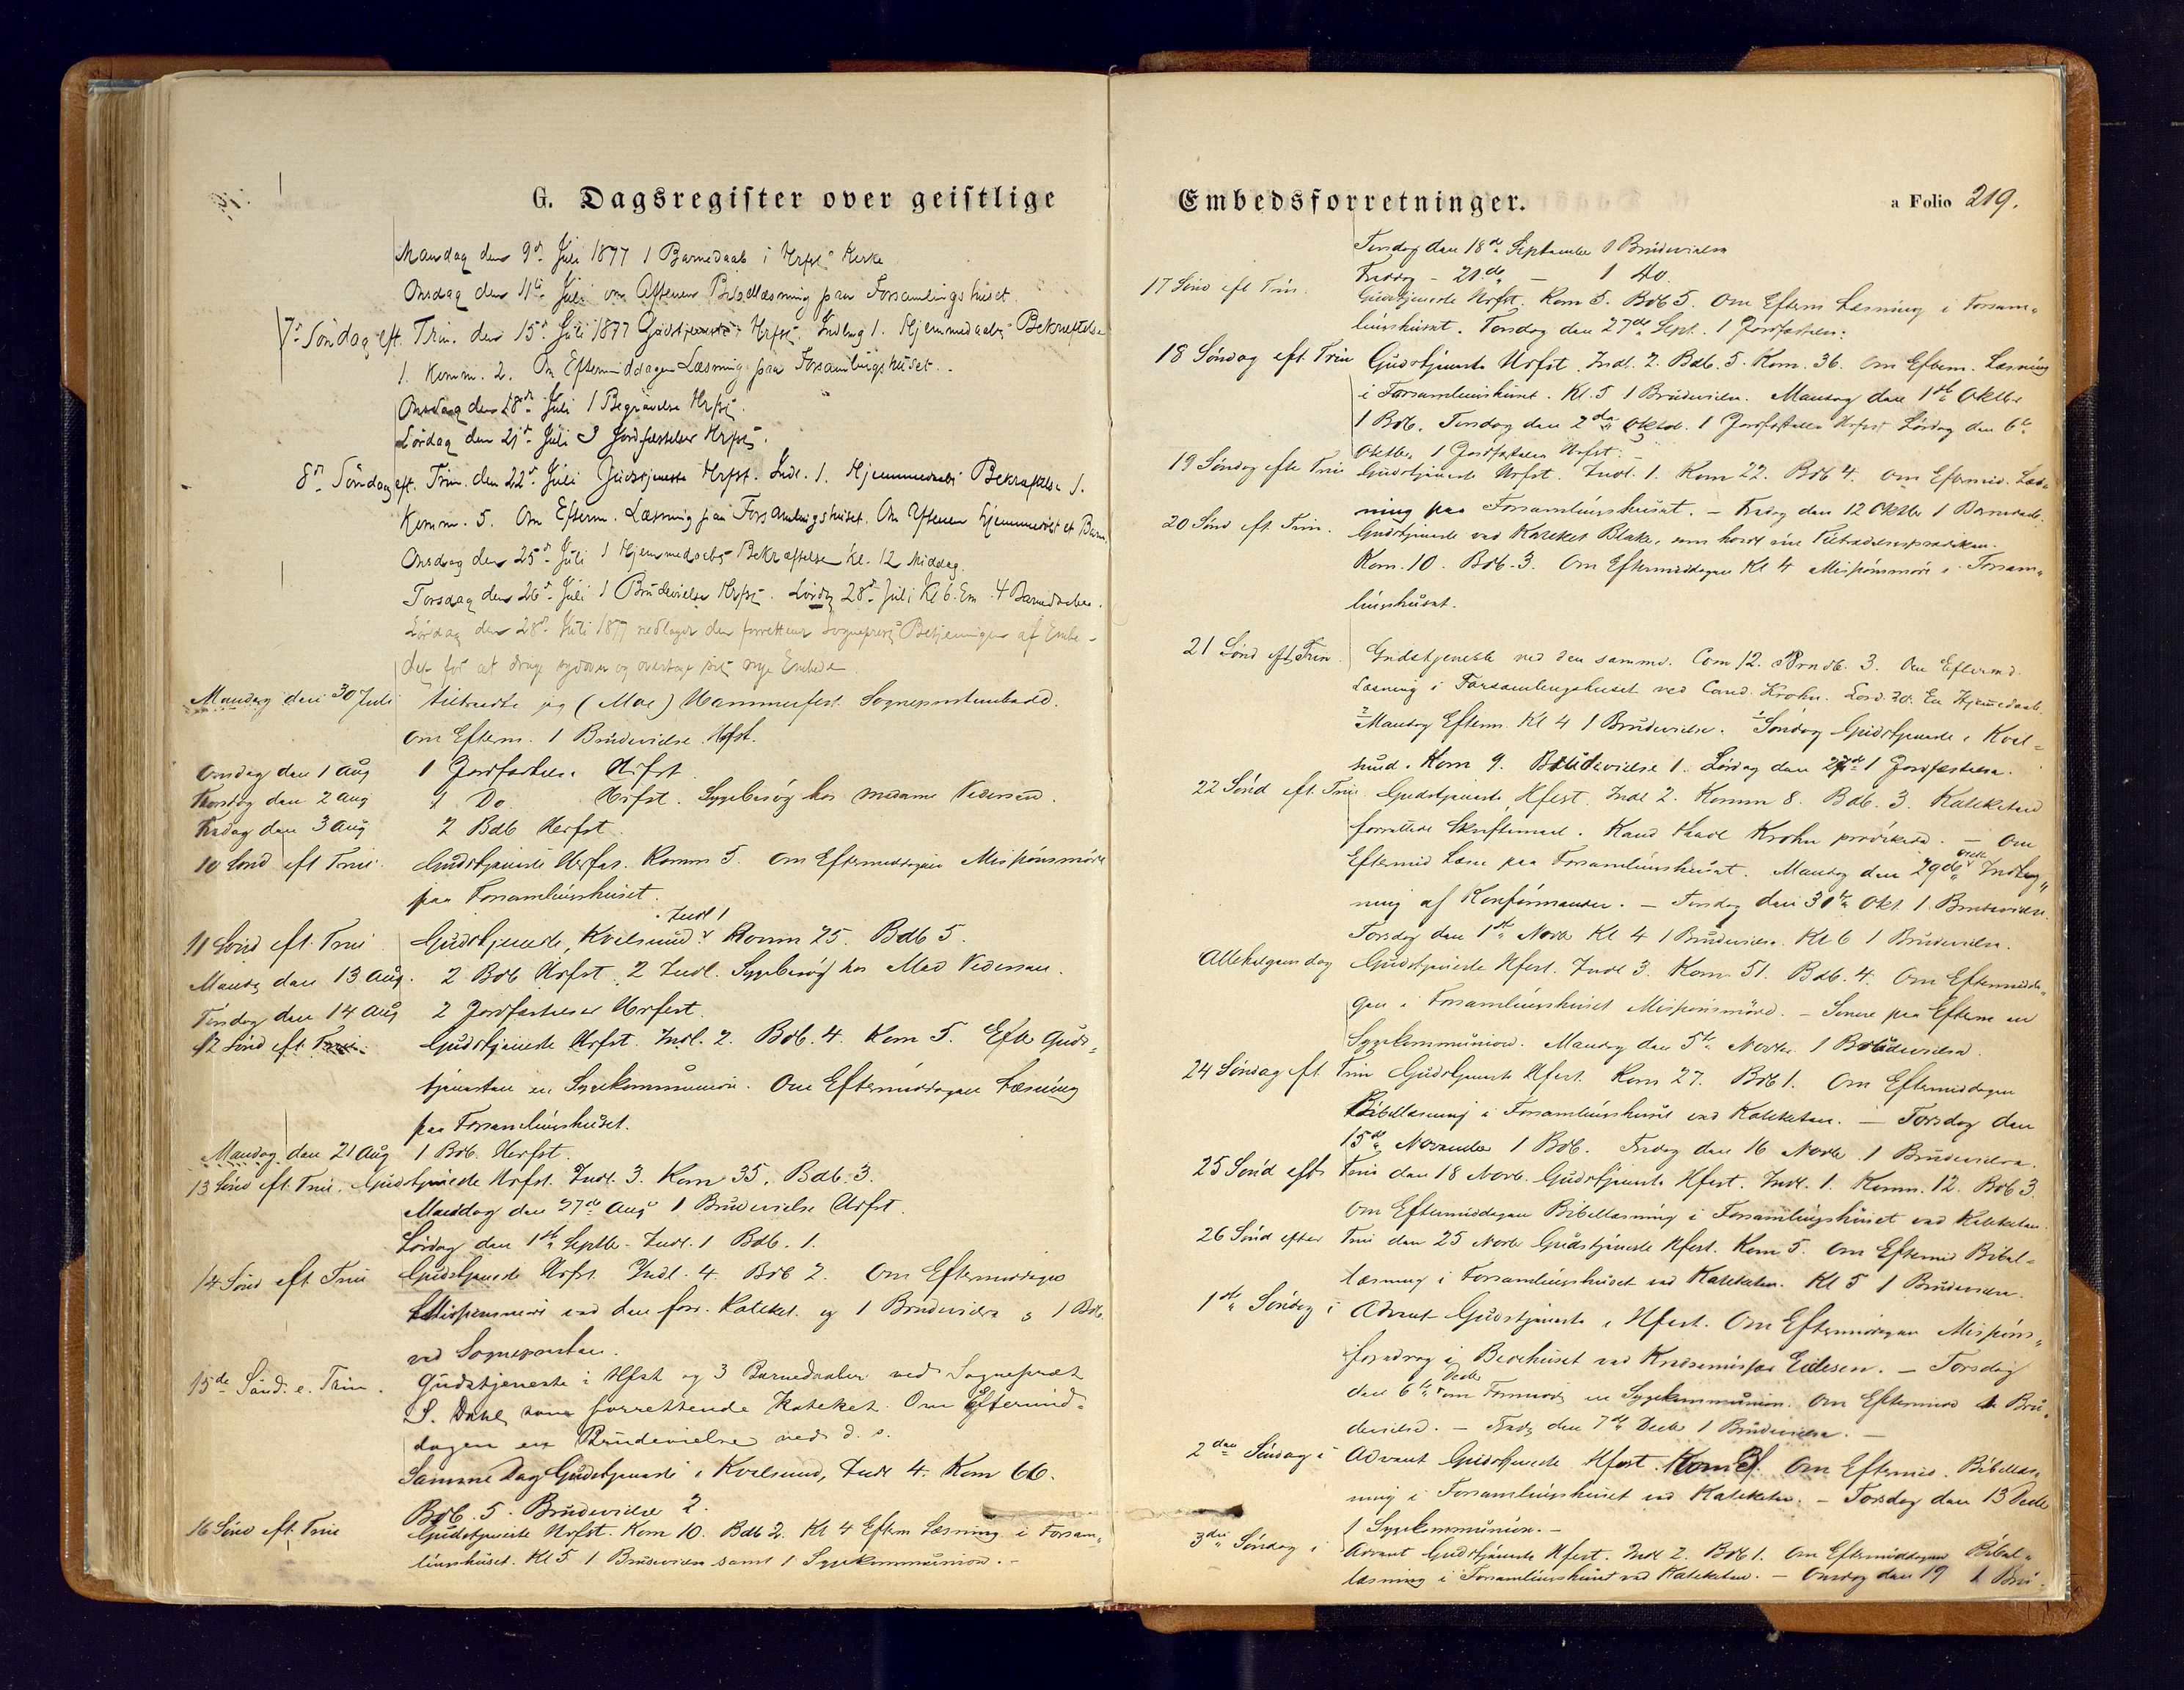 G. Dagsregister over geistlige
Mandag den 9de Juli 1877 1 Barnedaab i Hrfst Kirke
Onsdag den 11te Juli om Aftenen Bibellæsning paa Forsamlingshuset.
7de Søndag eft. Trin. den 15de Juli 1877 Gudstjeneste Hrfst. Indleg 1. Hjemmedaabs Bekræftelse
1. Komm. 2. Om Eftermiddagen Læsning paa Forsamlingshuset.
Onsdag den 18de Juli 1 Begravelse Hrfst.
Lördag den 21de Juli 3 Jordfæstelser Hrfst.
8de Søndag eft. Trin. den 22de Juli Gudstjeneste Hrfst. Indl. 1. Hjemmedaabs Bekræftelse 1.
Komm. 5. Om Efterm. Læsning paa Forsamlingshuset. Om Aftenen hjemmedöbt et Barn
Onsdag den 25de Juli 1 Hjemmedaabs Bekræftelse Kl. 12 Middag.
Torsdag den 26de Juli 1 Brudevielse Hrfst. Lördg 28de Juli Kl 6. Em. 4 Barnedaaber.
Lørdag den 28de Juli 1877 nedlagde den forrettende Sogneprest Betjeningen af Embe-
det for at drage sydover og overtage sit nye Embede
Mandag den 30 Juli tiltraadte jeg (Moe) Hammerfest Sogneprestembede.
Om Efterm. 1 Brudevielse Hfst.
Onsdag den 1 Aug 1 Jordfæstelse Hrfst
Thorsdag den 2 Aug 1 Do. Hrfst. Sygebesøg hos Madame Pedersen.
Fredag den 3 Aug 2 Bdb Herfst.
10 Sønd eft Trin. Gudstjeneste Herfst. Komm 5. Om Eftermiddagen Missionsmøde
paa Forsamlingshuset.
Indl 1
11 Sønd eft. Trin Gudstjeneste Kvalsund. Komm 25. Bdb 5.
Mandg den 13 Aug. 2 Bdb Hrfst. 2 Indl. Sygebesøg hos Mad Pedersen.
Tirsdag den 14 Aug 2 Jordfæstelser Hrfest.
12 Sønd eft. Trin. Gudstjeneste Hrfst. Indl. 2. Bdb. 4. Kom 5. Eft. Guds-
tjenesten en Sygekommunion. Om Eftermiddagen Læsning
paa Forsamlingshuset.
Mandag den 21 Aug 1 Bdb. Herfst.
13 Sønd eft. Trin. Gudstjeneste Hrfst. Indl. 3. Kom 35. Bdb. 3.
Mandag den 27de Aug 1 Brudevielse Hrfst.
Lørdag den 1ste Septbr. Indl. 1 Bdb. 1.
14 Sønd eft Trin Gudstjeneste Hrfst. Indl. 4. Bdb 2. Om Eftermiddagen
Missionsmøde ved den forr. Kateket. og 1 Brudevielse o 1 Bdb.
ved Sognepresten.
15de Sønd. e. Trin. Gudstjeneste i Hfst og 3 Barnedaaber ved Sogneprest
S. Dahl, som forrettende Kateket. Om Eftermid-
dagen en Brudevielse ved d. s.
Samme Dag Gudstjeneste i Kvalsund, Indl 4. Kom 66.
Bdb. 5. Brudevielse 2.
16 Sønd eft. Trin Gudstjeneste Hrfst. Kom 10. Bdb 2. Kl 4 Efterm Læsning i Forsam-
lingshuset. Kl 5 1 Brudevielse samt 1 Sygekommunion.
Embedsforretninger.
a Folio 219.
Tirsdag den 18de September 1 Brudevielse
Fredag - 21de - 1 do.
17 Sønd eft Trin. Gudstjeneste Hrfst. Kom 5. Bdb 5. Om Efterm Læsning i Forsam-
lingshuset. Torsdag den 27de Sept. 1 Jordfæstelse.
18 Søndag eft. Trin Gudstjeneste Hrfst. Indl. 2. Bdb. 5. Kom. 36. Om Efterm. Læsning
i Forsamlingshuset. Kl. 5 1 Brudevielse. Mandag den 1ste Oktbr
1 Bdb. Tirsdag den 2den Oktob. 1 Jordfæstelse Hrfst Lördag den 6te
Oktbr. 1 Jordfæstelse Hrfst.
19 Søndag efter Trin Gudstjeneste Hrfst. Indl. 1. Kom 22. Bdb 4. Om Eftermid. Læs-
ning paa Forsamlingshuset. - Fredag den 12 Oktbr 1 Barnedaab.
20 Sønd eft. Trin. Gudstjeneste ved Kateket Blake, som holdt sin Tiltrædelsesprædiken.
Kom. 10. Bdb. 3. Om Eftermiddagen Kl 4 Missionsmøde i Forsam-
lingshuset.
21 Sønd eft Trin. Gudstjeneste ved den samme. Com 12. Brndb. 3. Om Eftermd.
Læsning i Forsamlingshuset ved Cand. Krohn. Lørd. 20. En Hjemmedaab.
Mandag Efterm. Kl 4 1 Brudevielse. Søndag Gudstjeneste i Kval-
sund. Kom 9. Brudevielse 1. Lørdag den 27de 1 Jordfæstelse.
22 Sønd eft. Trin Gudstjeneste Hfest. Indl 2. Komm 8. Bdb. 3. Kateketen
forrettede Skriftemaal. Kand theol Krohn prædikede. - Om
Eftermid Læsn paa Forsamlingshuset. Mandag den 29de Oktb. Indteg-
ning af Konfirmander. - Tirsdag den 30te Okt. 1 Brudevielse.
Torsdag den 1ste Novb Kl 4 1 Brudevielse. Kl 6 1 Brudevielse.
Allehelgensdag Gudstjeneste Hfest. Indl 3. Kom. 51. Bdb. 4. Om Eftermidda-
gen i Forsamlingshuset Missionsmøde. - Senere paa Efterm en
Sygekommunion. Mandag den 5te Novbr. 1 Brudevielse.
24 Søndag eft. Trin Gudstjeneste Hfest. Kom 27. Bdb 1. Om Eftermiddagen
Bibellæsning i Forsamlingshuset ved Kateketen. - Torsdag den
15de November 1 Bdb. Fredag den 16 Novbr 1 Brudevielse.
25 Sønd eft. Trin den 18 Novb. Gudstjeneste Hfest. Indl. 1. Komm. 12. Bdb 3.
Om Eftermiddagen Bibellæsning i Forsamlingshuset ved Kateketen.
26 Sønd efter Trin den 25 Novbr Gudstjeneste Hfest. Kom 5. Om Eftermid Bibel-
læsning i Forsamlingshuset ved Kateketen. Kl 5 1 Brudevielse.
1ste Søndag i Advent Gudstjeneste i Hfest. Om Eftermiddagen Missions-
foredrag i Bedehuset ved Eilesen. - Torsdag
den 6te Decbr om Formidd. en Sygekommunion. Om Eftermidd 1 Bru-
devielse. - Fredg den 7de Decbr 1 Brudevielse. -
2den Søndag i Advent Gudstjeneste Hfest. Kom 3. Om Eftermid. Bibellæs-
ning i Forsamlingshuset ved Kateketen. - Torsdag den 13 Decbr
1 Sygekommunion. -
3die Søndag i Advent Gudstjeneste Hfest. Indl 2. Bdb 1. Om Eftermiddagen Bibel-
læsning i Forsamlingshuset ved Kateketen. - Onsdag den 19 1 Bru-